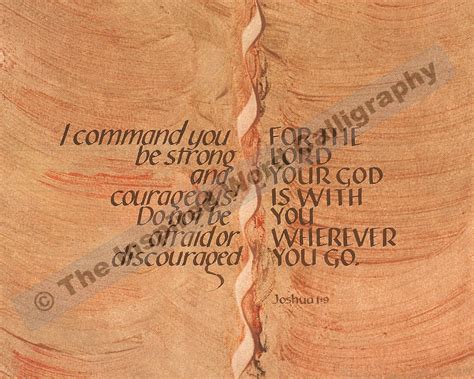 I command you
be strong
and
courageous!
Do not be
afraid or
discouraged
FOR THE
LORD
YOUR GOD
IS WITH
YOU
WHEREVER
YOU GO.
Joshua 1:9
© The Calligraphy